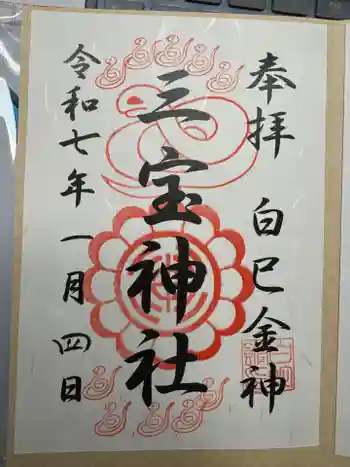 奉拝 白巳金神
三宝神社
令和七年一月四日